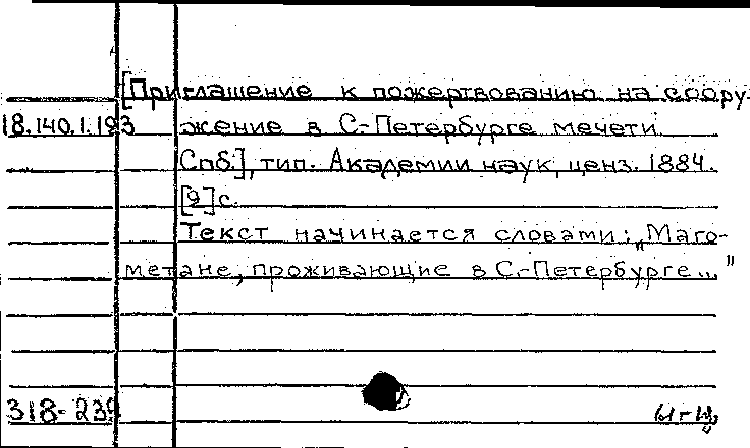 [Приглашение к пожертвованию на соору-
18.140.1.193 жение в С.-Петербурге мечети.
Спб.], тип. Академии наук, ценз. 1884.
[2] с.
Текст начинается словами: „Маго-
метане, проживающие в С.-Петербурге..."
318-239